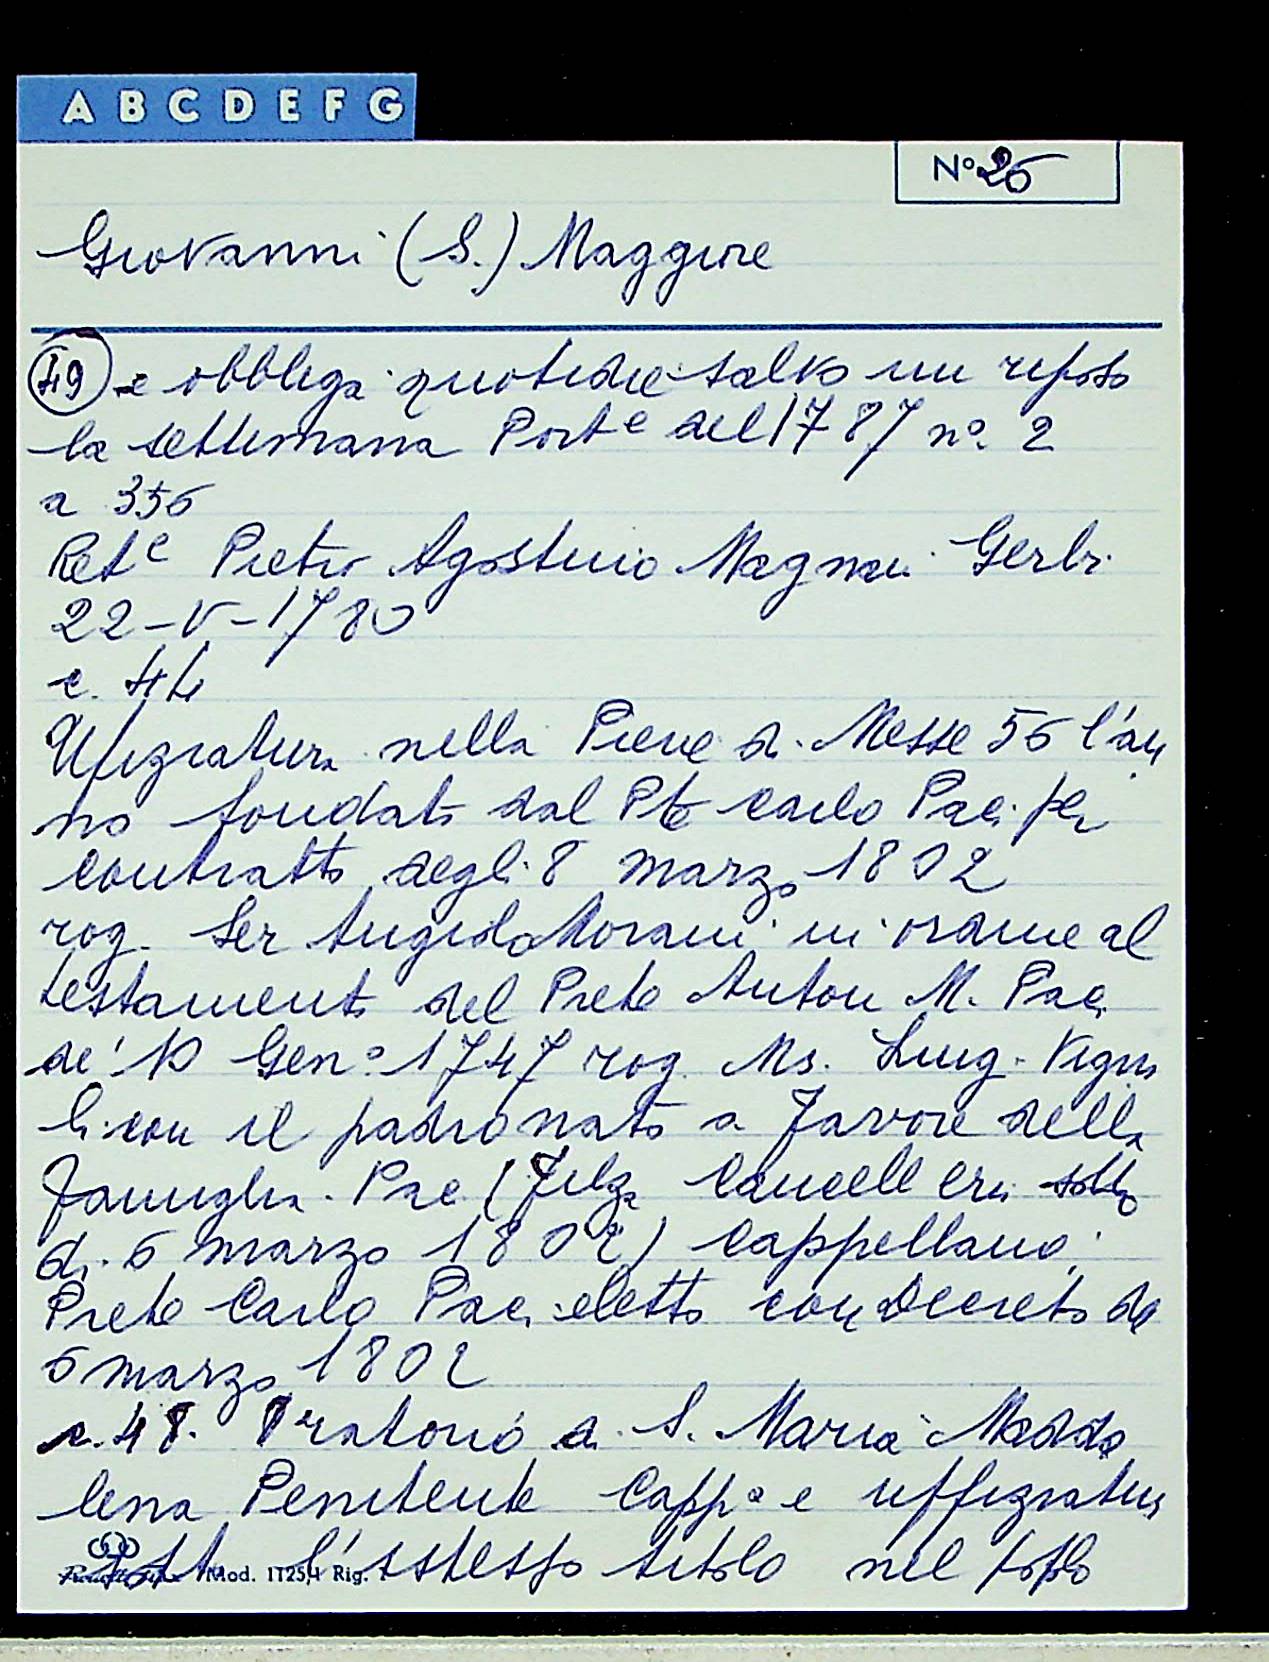 A B C D E F G
N° 26
Giovanni (S.) Maggiore
49 e obbliga quotidie salvo un riposo
la settimana Port e del 1787 n° 2
a 356
Ret e Pietro Agostino Magnai Gerbi
22-V-1780
c. 44
Ufiziatura nella Pieve di Messe 56 l'an
no fondata dal Pte Carlo Paci per
contratto degli 8 marzo 1802
rog. Ser Angiolo Morani in ordine al
testamento del Prete Anton M. Paci
de' 10 Gen° 1747 rog. Ms. Luig. Vigno
li con il padronato a favore della
famiglia Paci (Filza Cancelleria sotto
di 6 marzo 1802) Cappellano:
Prete Carlo Paci eletto con Decreto de
6 marzo 1802
c. 48. Oratorio di S. Maria Madda
lena Penitente Capp a e uffiziatura
sotto l'istesso titolo nel poplo
Mod. 1125/4 Rig.